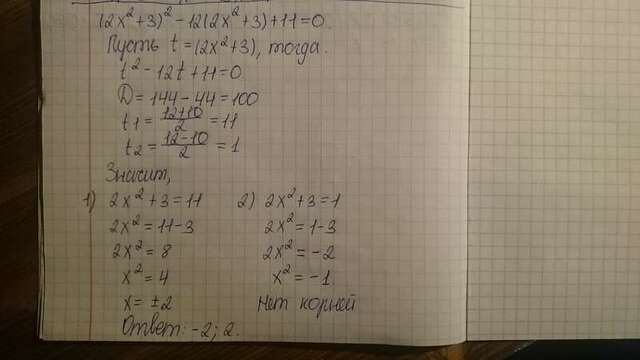 (2x²+3)²-12(2x²+3)+11=0.
Пусть t=(2x²+3), тогда.
t²-12t+11=0.
D=144-44=100
t1=(12+10)/2=11
t2=(12-10)/2=1
Значит,
1) 2x²+3=11 2) 2x²+3=1
2x²=11-3 2x²=1-3
2x²=8 2x²=-2
x²=4 x²=-1.
x=±2 Нет корней
Ответ: -2; 2.